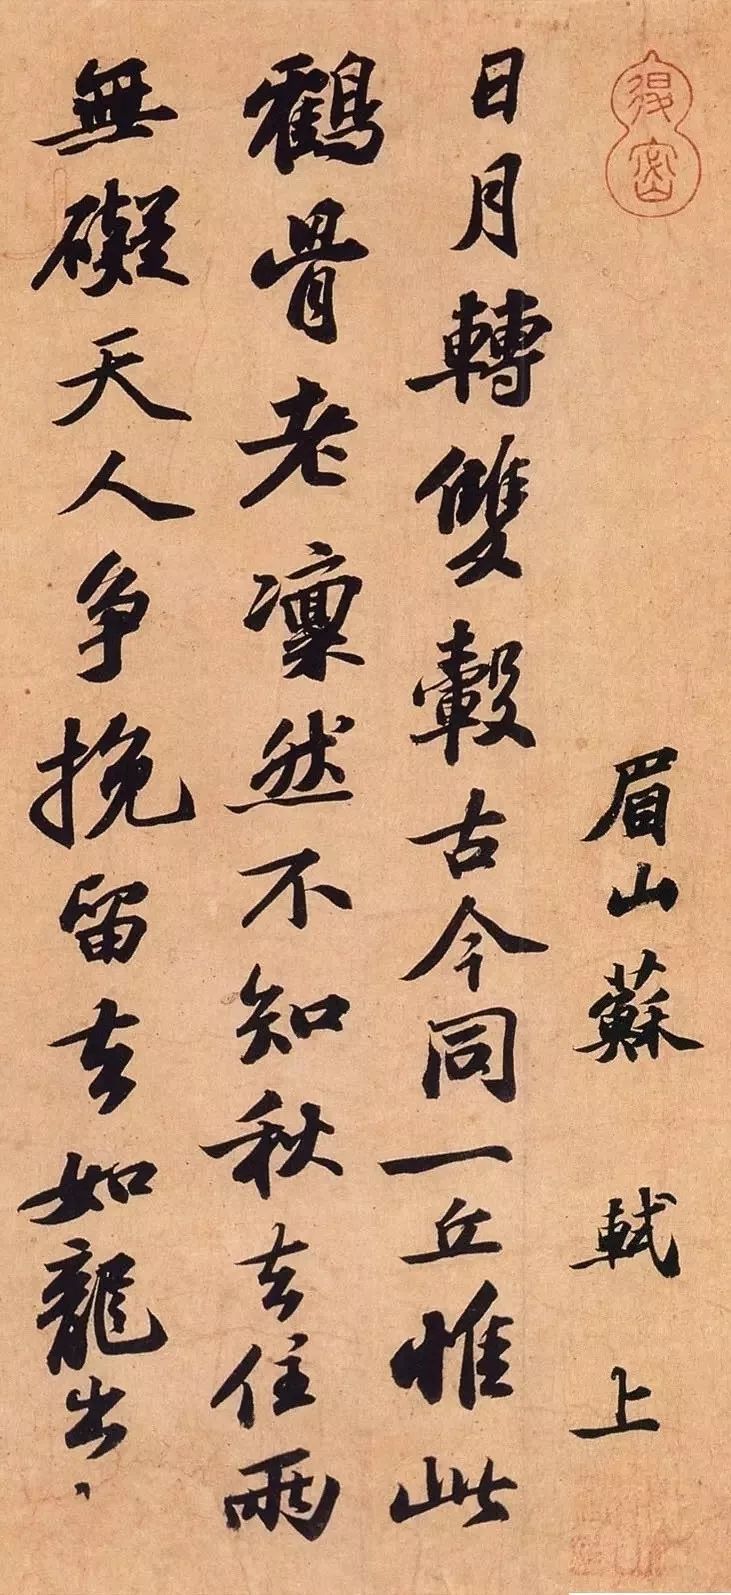 眉山蘇 軾 上
日月轉雙轂古今同一丘惟此
鶴骨老凜然不知秋去住兩
無礙天人争挽留去如龍出、